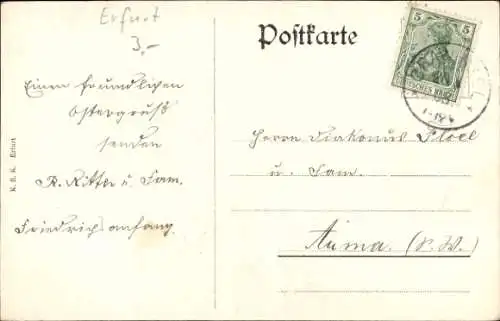 Erfurt
3,-
Postkarte
5
5
DEUTSCHES REICH
Einen freundlichen
Ostergruß
senden
R. Ritter u. Fam.
Friedrichsanfang.
K. B. K. Erfurt
Herrn Diakonus Ploel
u. Fam.
Auma. (S. W.)